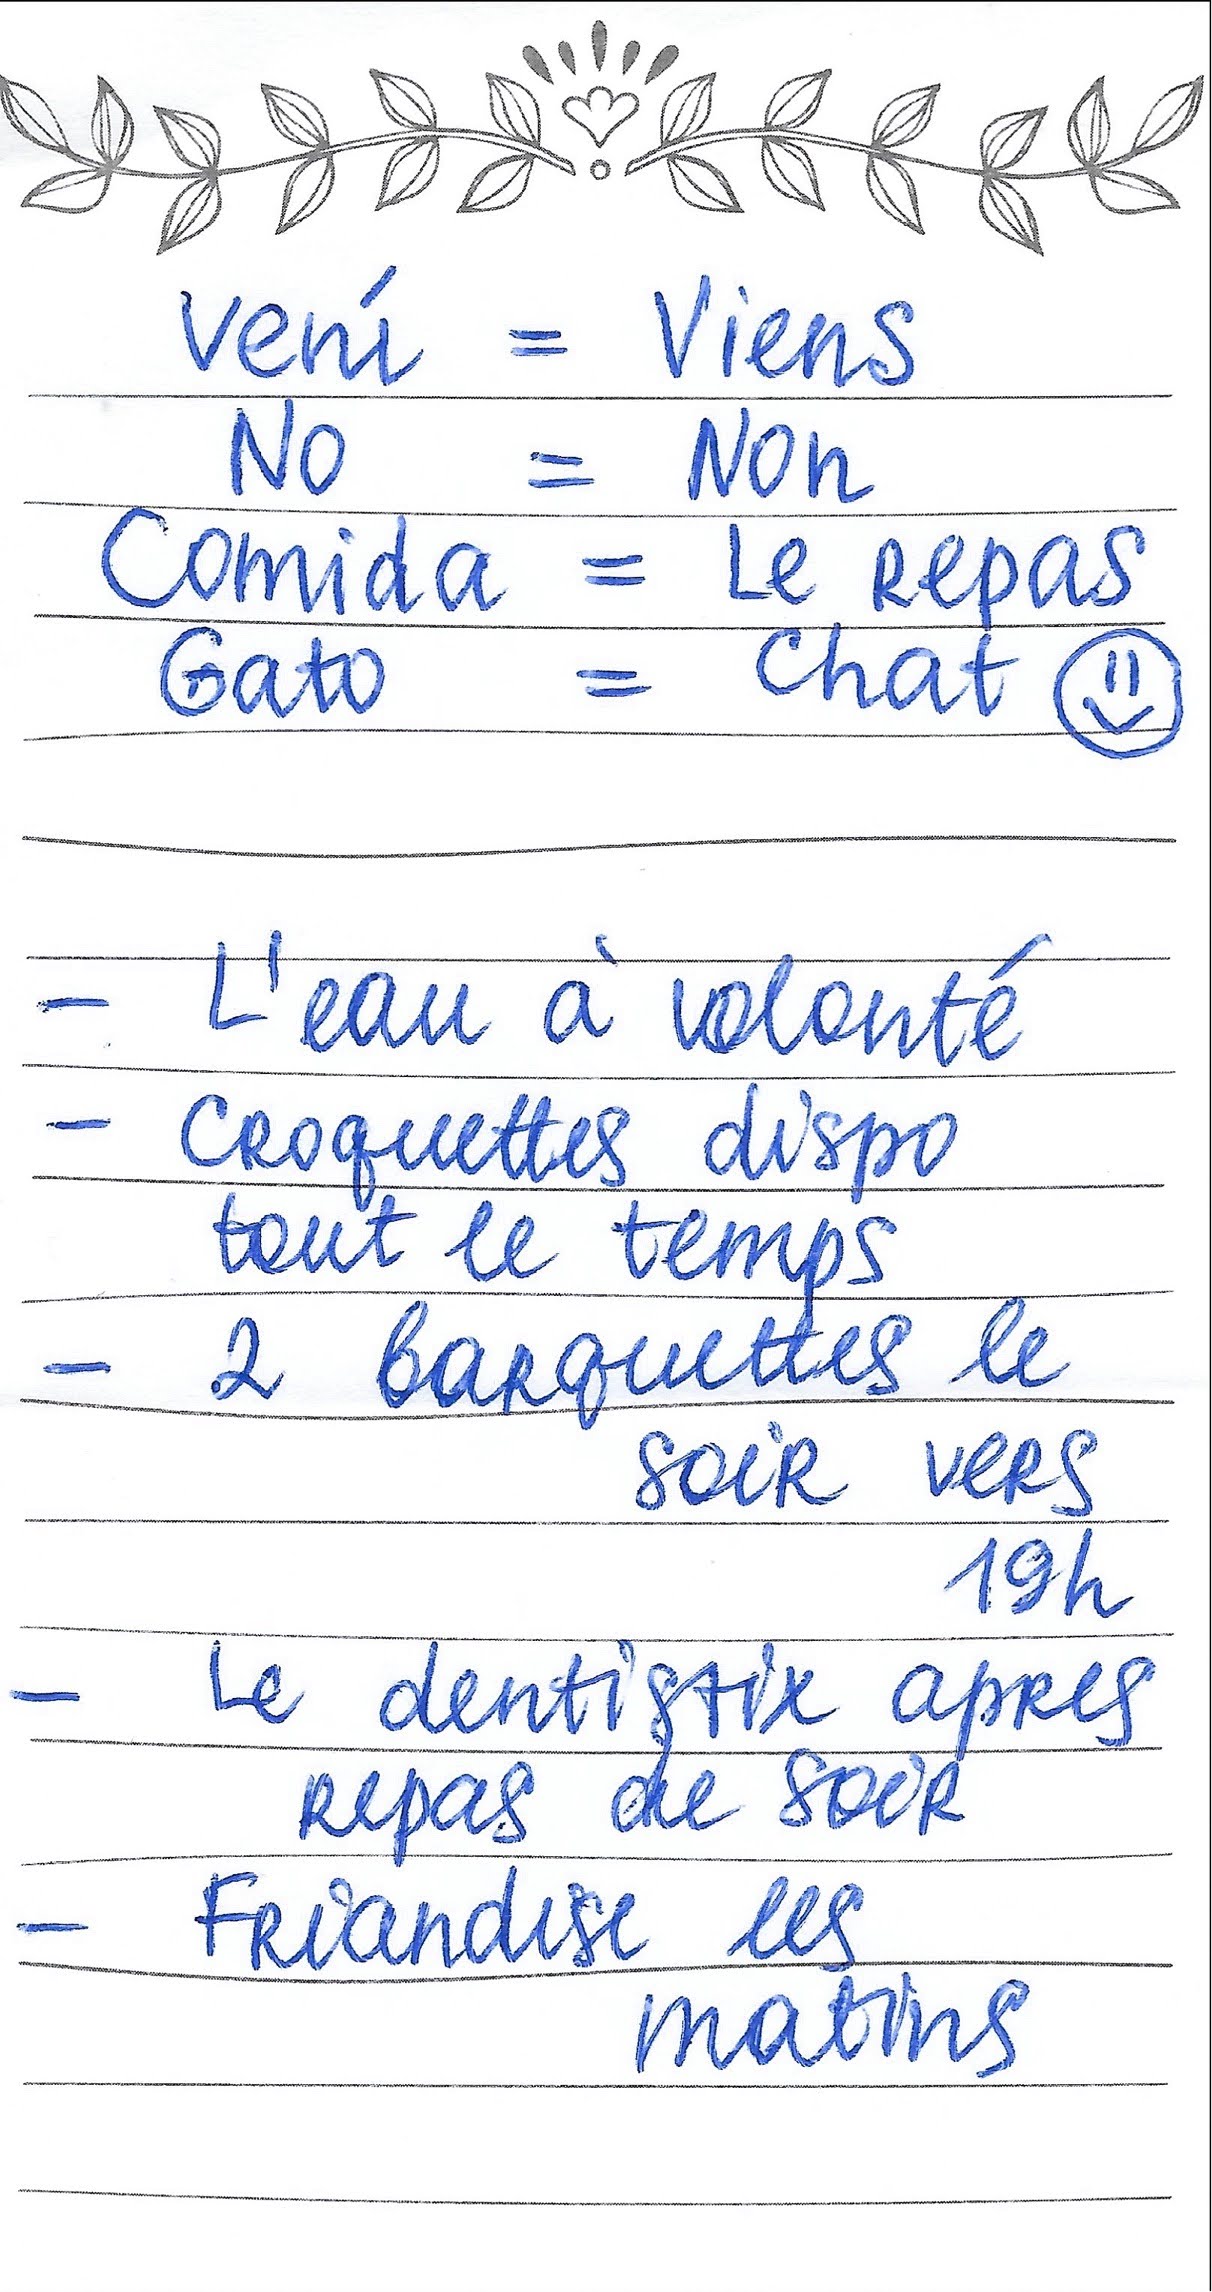 Vení = Viens
No = Non
Comida = Le repas
Gato = Chat
- L'eau à volonté
- Croquettes dispo
tout le temps
- 2 barquettes le
soir vers
19h
- Le dentistix apres
repas de soir
- Friandise les
matins